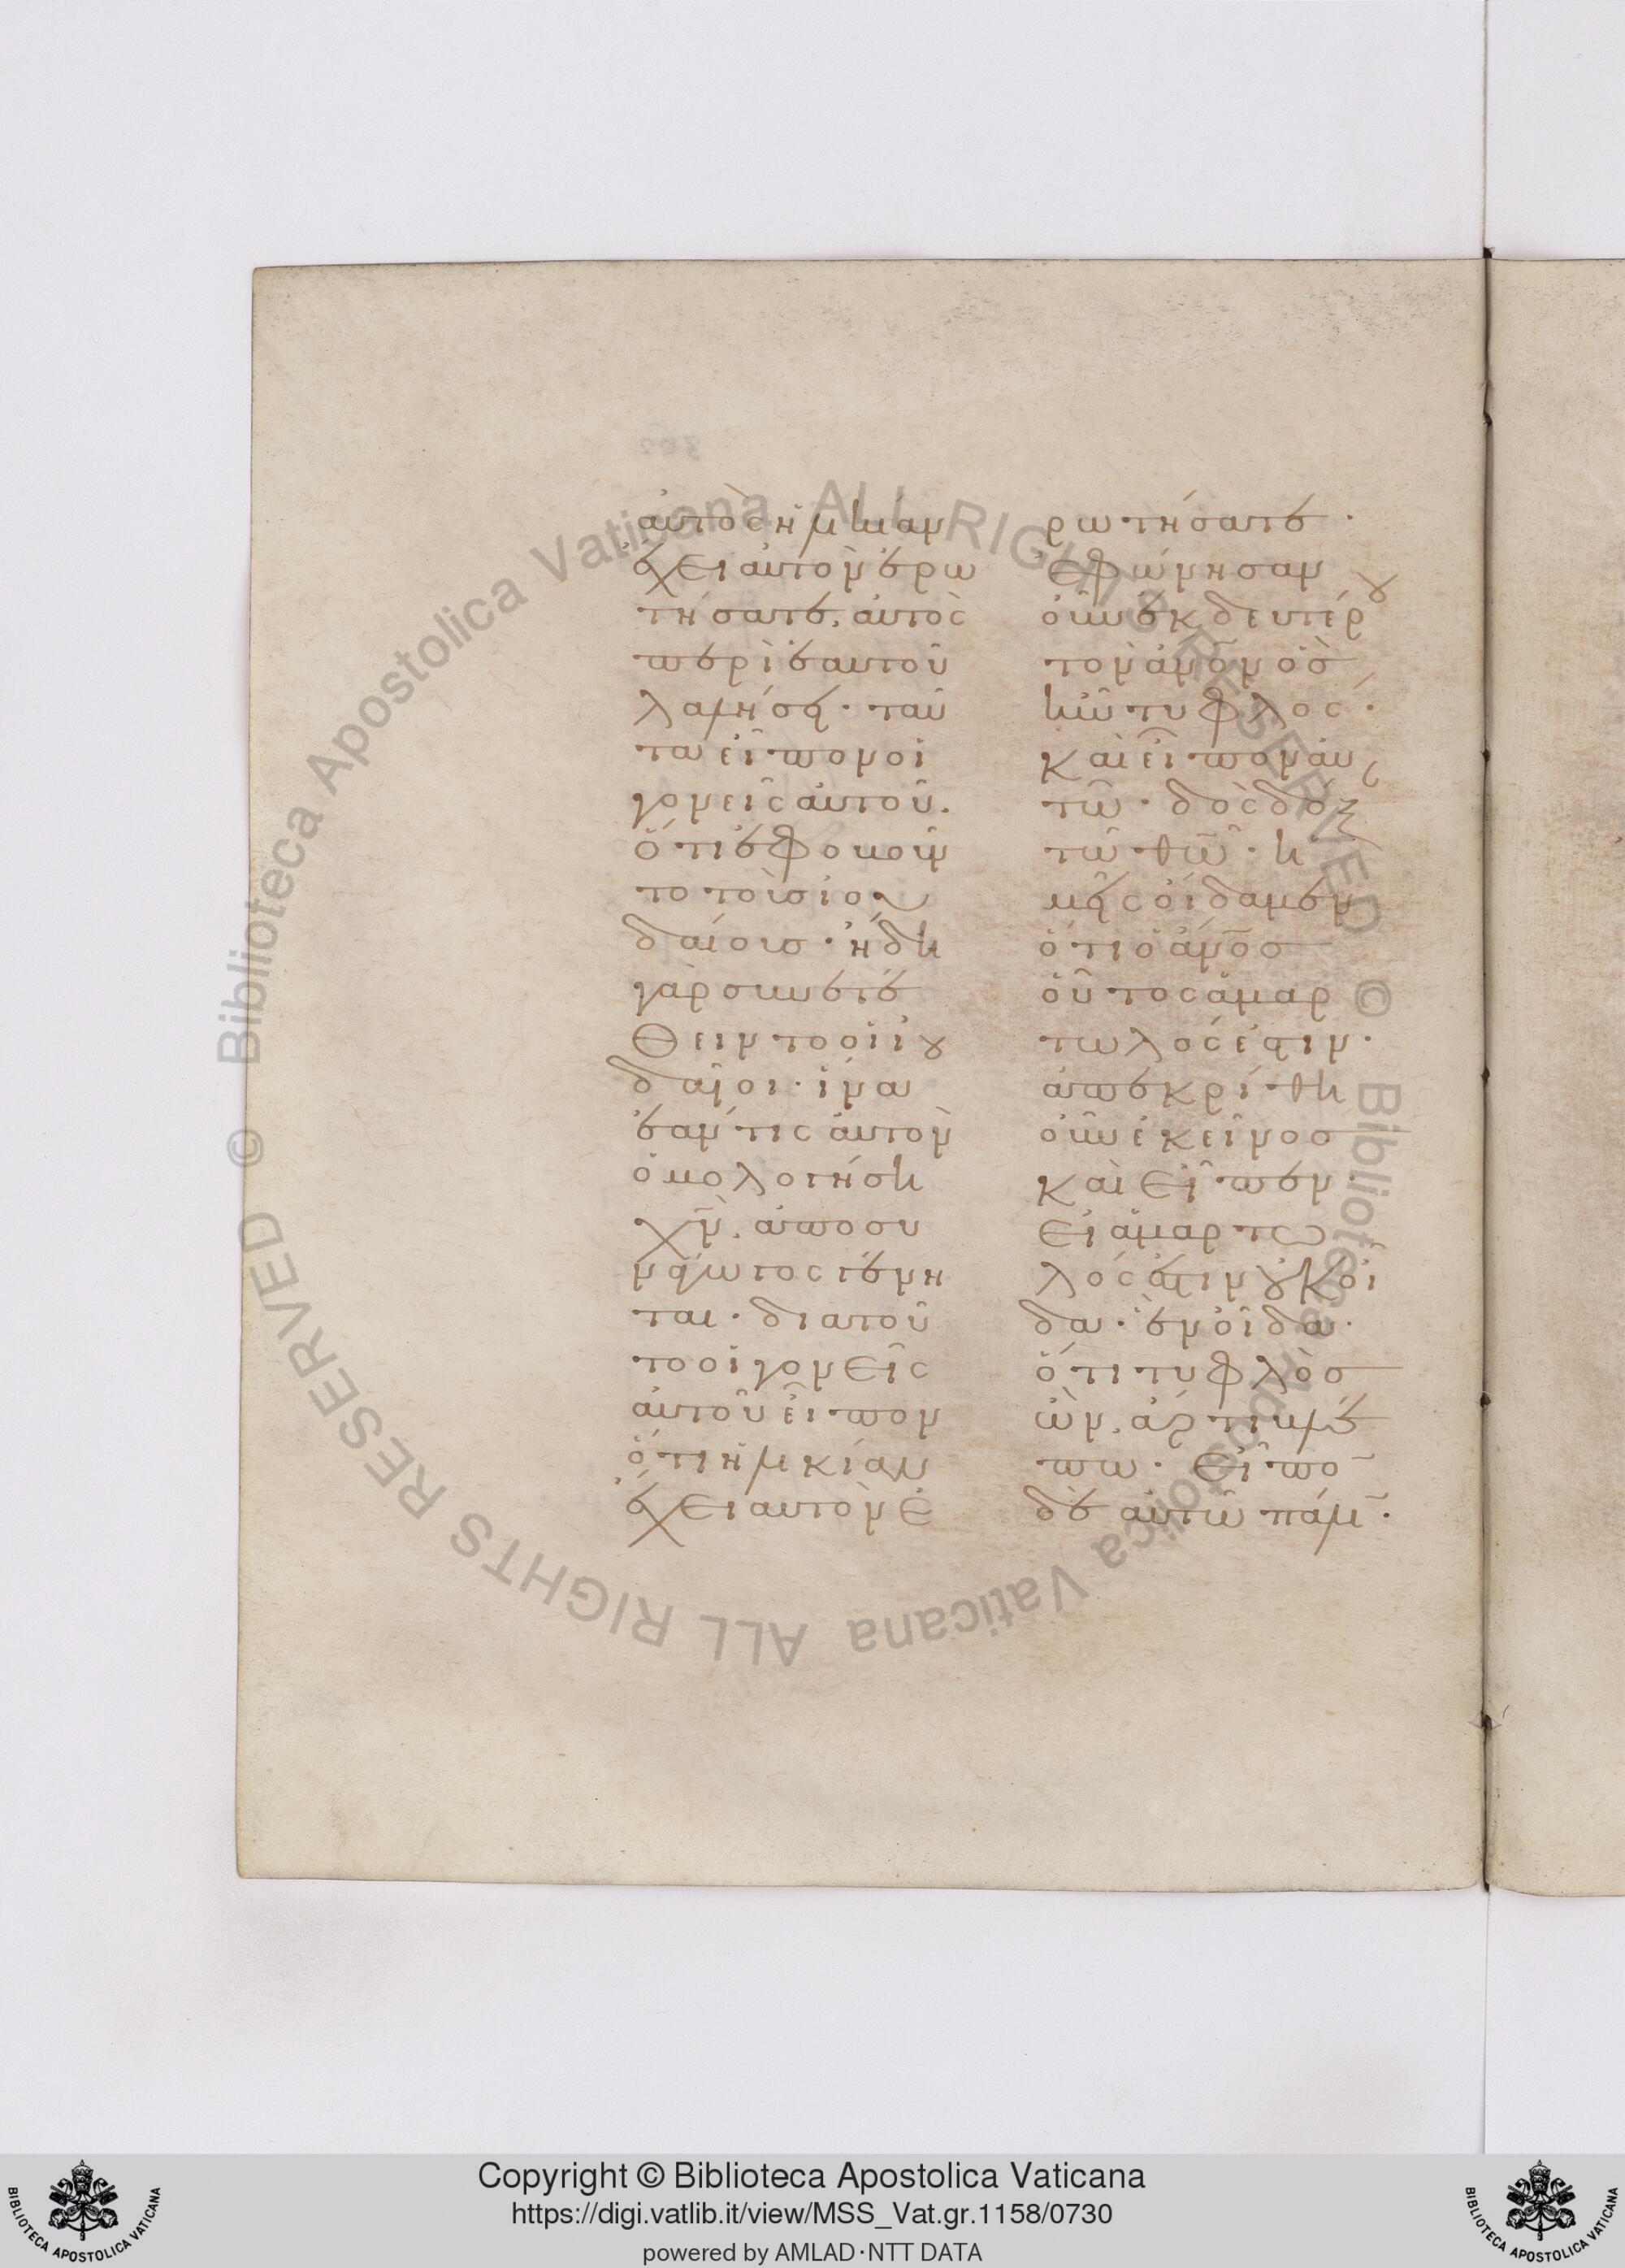 αὐτὸς ἡλικίαν
ἔχει αὐτὸν ἐρω
τήσατε, αὐτὸς
περὶ ἑαυτοῦ
λαλήσει· ταῦ
τα εἶπον οἱ
γονεῖς αὐτοῦ·
ὅτι ἐφοβοῦν
το τοὺς ἰου
δαίους· ἤδη
γὰρ συνετέ
θειντο οἱ ἰου
δαῖοι· ἵνα
ἐάν τις αὐτὸν
ὁμολογήση
χν̅, ἀποσυ
νάγωγος γένη
ται· διατοῦ
το οἱ γονεῖς
αὐτοῦ εἶπον
ὅτι ἡλικίαν
ἔχει αὐτὸν ἐ
ρωτήσατε·
ἐφώνησαν
οὖν ἐκ δευτέρου
τὸν ἄνον̅ ὃς
ἦν τυφλός·
καὶ εἶπον αὐ
τῶ· δὸς δόξαν
τῶ θω̅· ἡ
μεῖς οἴδαμεν
ὅτι ὁ ἄνος̅
οὗτος ἁμαρ
τωλός ἐστιν·
ἀπεκρίθη
οὖν ἐκεῖνος
καὶ εἶπεν·
Εἰ ἁμαρτω
λός ἐστιν οὐκ οἶ
δα· ἓν οἶδα·
ὅτι τυφλὸς
ὢν, ἄρτι βλέ
πω· Εἶπο̅
δὲ αὐτῶ πάλι̅·
Copyright © Biblioteca Apostolica Vaticana
https://digi.vatlib.it/view/MSS_Vat.gr.1158/0730
powered by AMLAD·NTT DATA
BIBLIOTECA APOSTOLICA VATICANA
BIBLIOTECA APOSTOLICA VATICANA
© Biblioteca Apostolica Vaticana ALL RIGHTS RESERVED © Biblioteca Apostolica Vaticana ALL RIGHTS RESERVED